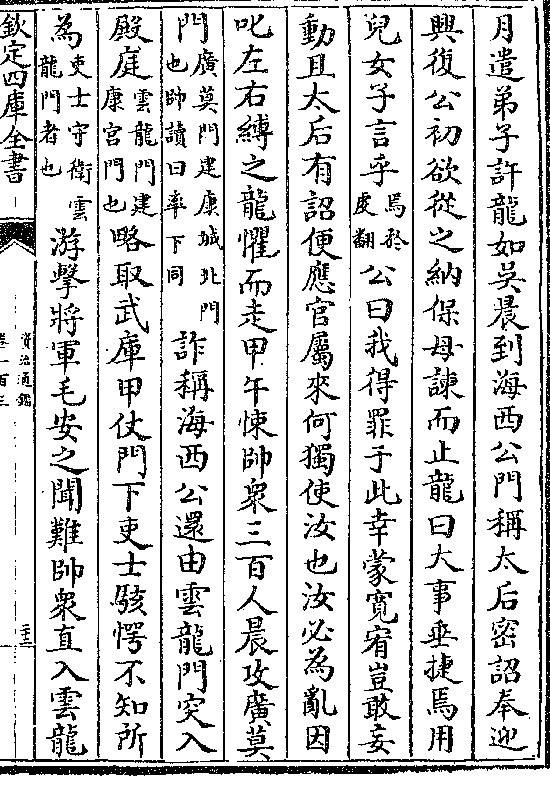 月遣弟子許龍如吳晨到海西公門稱太后密詔奉迎
興復公初欲從之納保母諫而止龍曰大事垂捷焉用
兒女子言乎焉於虔翻公曰我得罪于此幸蒙寬宥豈敢妄
動且太后有詔便應官屬來何獨使汝也汝必為亂因
叱左右縛之龍懼而走甲午悚帥衆三百人晨攻廣莫
門廣莫門建康城北門也帥讀曰率下同詐稱海西公還由雲龍門突入
殿庭雲龍門建康宮門也略取武庫甲仗門下吏士駭愕不知所
為吏士守衛雲龍門者也游擊將軍毛安之聞難帥衆直入雲龍
欽定四庫全書
資治通鑑
卷一百三